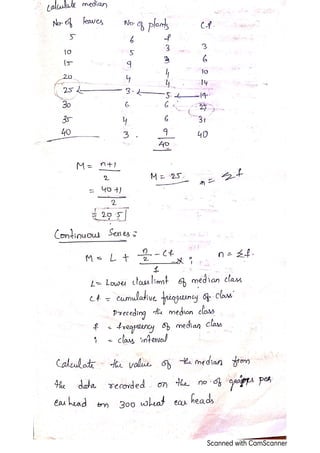 Calculate median
No. of leaves No. of plants C.f
5 6 f
10 5 3 3
15 9 3 6
20 4 4 10
25 3 4 14
5 19
30 6 6
35 4 6 31
40 3 9 40
40
M = n+1
2
M = 25 n = Σf
= 40+1
2
= 20.5
Continuous Series:
M = L + n/2 - Cf × i n = Σf.
f
L = Lower class limit of median class
Cf = cumulative frequency of class
Preceding the median class
f = frequency of median class
i = class interval
Calculate the value of the median from
the data recorded on the no of per
ear head on 300 wheat ear heads
Scanned with CamScanner